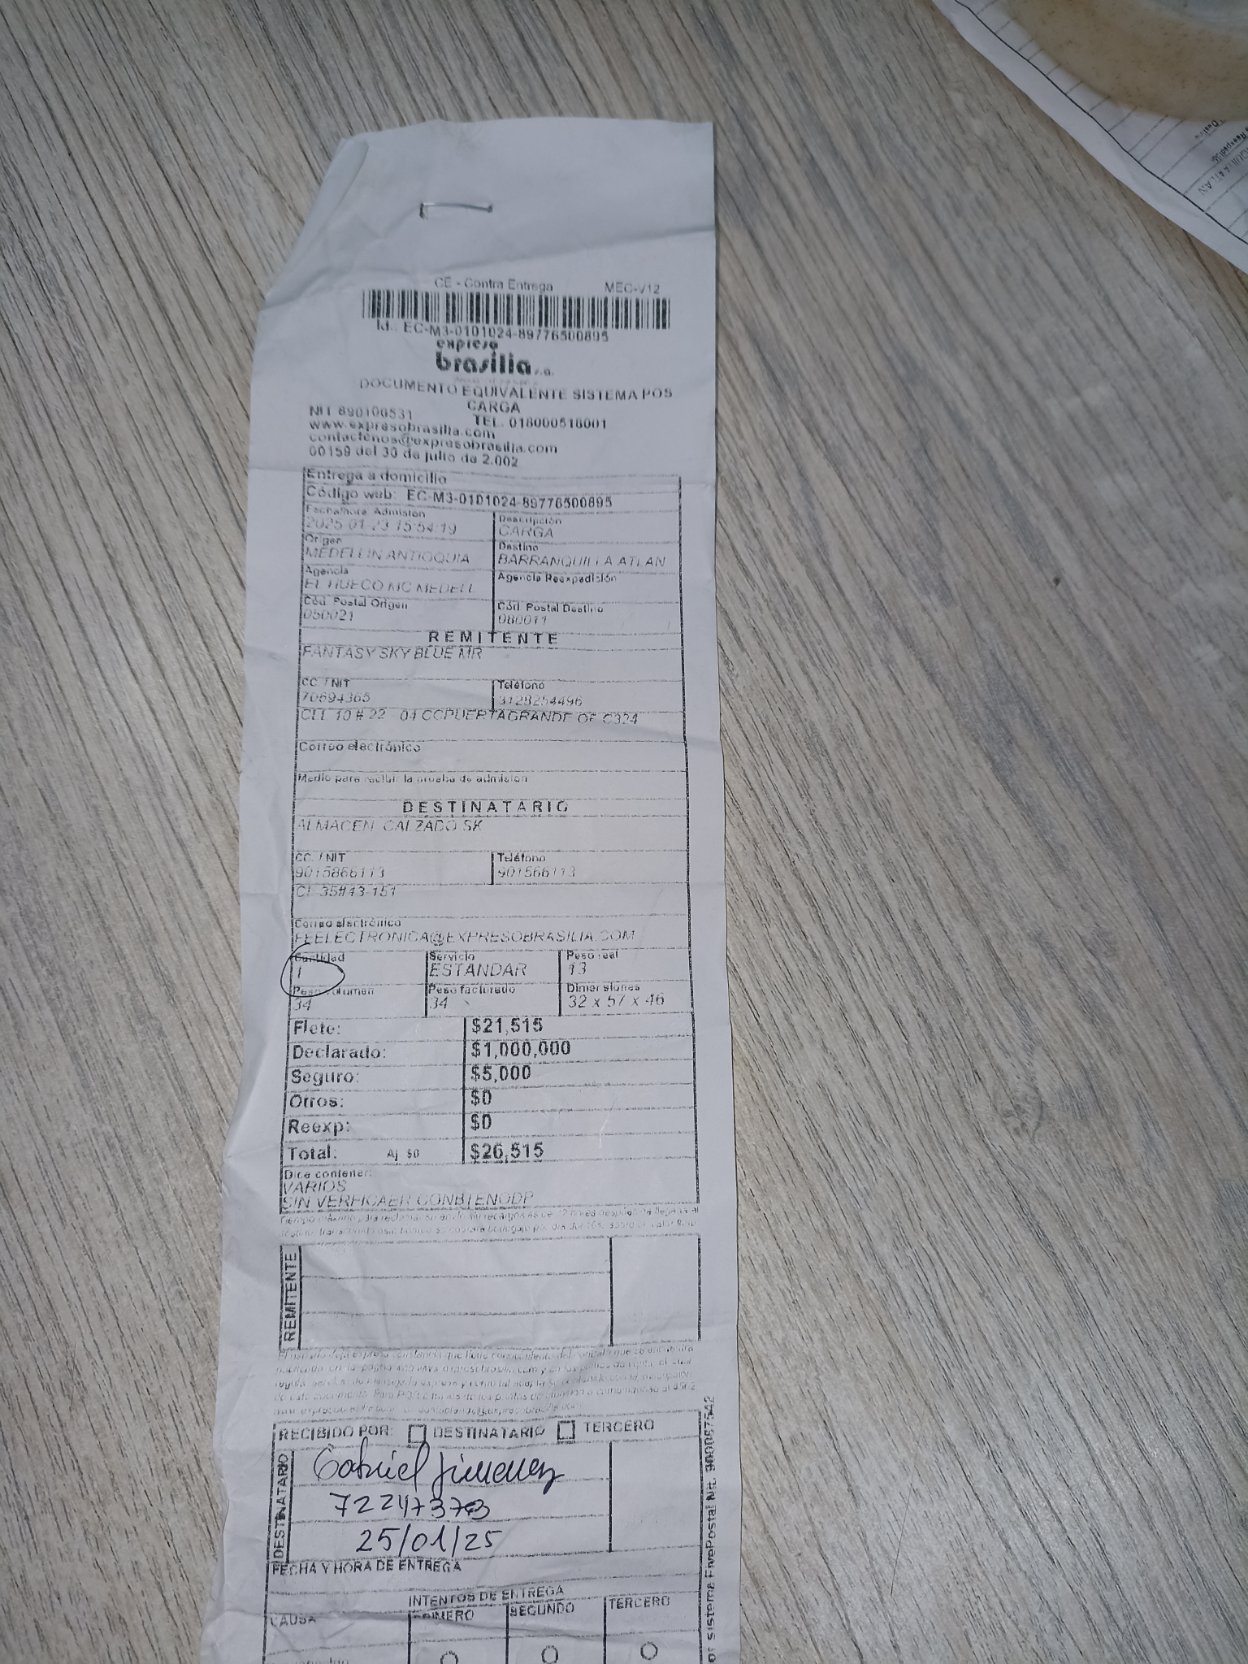 CE - Contra Entrega MEC-V12
Id.: EC-M3-0101024-89776500895
expreso
brasilia s.a.
DOCUMENTO EQUIVALENTE SISTEMA POS
CARGA
NIT 890100531 TEL. 018000518001
www.expresobrasilia.com
contactenos@expresobrasilia.com
00159 del 30 de julio de 2.002
Entrega a domicilio
Código web: EC-M3-0101024-89776500895
Fecha/hora Admisión Descripción
2025-01-23 15:54:19 CARGA
Origen Destino
MEDELLIN ANTIOQUIA BARRANQUILLA ATLAN
Agencia Agencia Reexpedición
EL HUECO MC MEDELL
Cód. Postal Origen Cód. Postal Destino
050021 080011
REMITENTE
FANTASY SKY BLUE MR
CC. / NIT Teléfono
70694365 3128254496
CLL 10 # 22 - 04 CCPUERTAGRANDE OF C324
Correo electrónico
Medio para recibir la prueba de admisión
DESTINATARIO
ALMACEN CALZADO SK
CC. / NIT Teléfono
9015866113 901566113
CL 35#43-151
Correo electrónico
FEELECTRONICA@EXPRESOBRASILIA.COM
Cantidad Servicio Peso real
1 ESTANDAR 13
Peso volumen Peso facturado Dimensiones
34 34 32 x 57 x 46
Flete: $21,515
Declarado: $1,000,000
Seguro: $5,000
Otros: $0
Reexp: $0
Total: Aj $0 $26,515
Dice contener:
VARIOS
SIN VERFICAER CONBTENODP
REMITENTE
RECIBIDO POR: DESTINATARIO TERCERO
DESTINATARIO
Gabriel Jimenez
72247373
25/01/25
FECHA Y HORA DE ENTREGA
INTENTOS DE ENTREGA
CAUSA PRIMERO SEGUNDO TERCERO
sistema FivePostal Nit. 900087542